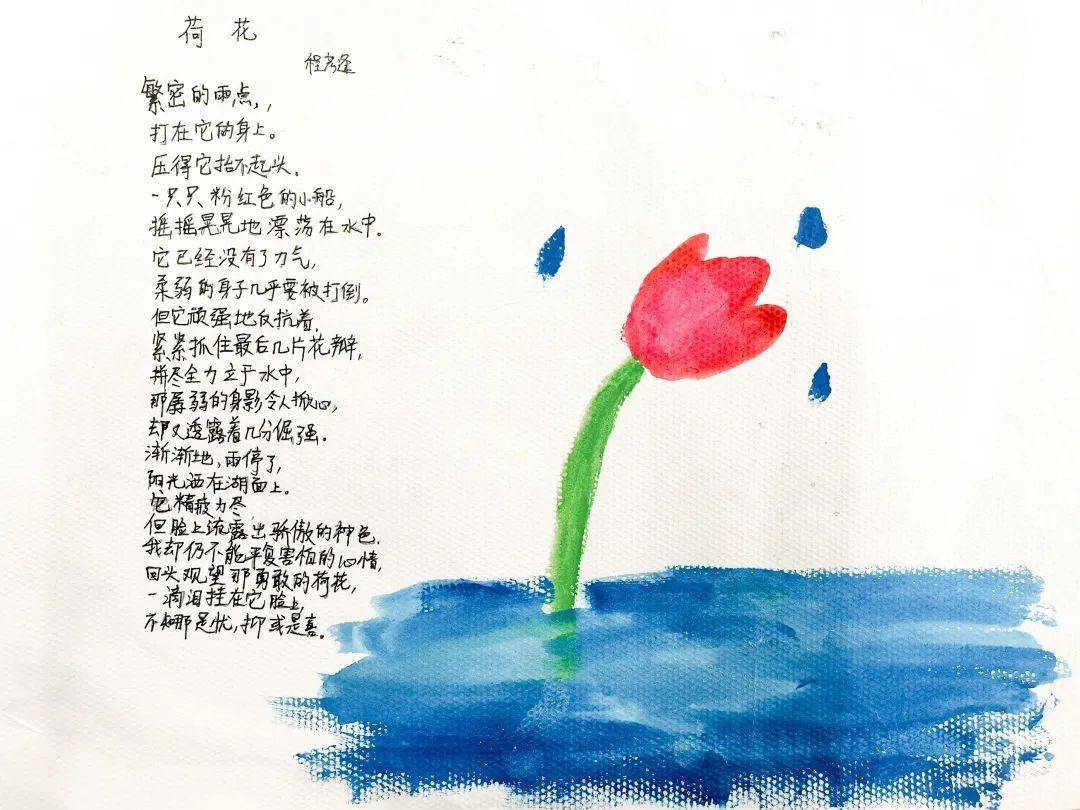 荷 花
程
繁密的雨点,,
打在它的身上。
压得它抬不起头.
一只只粉红色的小船,
摇摇晃晃地漂荡在水中.
它已经没有了力气,
柔弱的身子几乎要被打倒。
但它顽强地反抗着,
紧紧抓住最后几片花瓣,
拼尽全力立于水中,
那孱弱的身影令人揪心,
却又透露着几分倔强。
渐渐地,雨停了,
阳光洒在湖面上。
它精疲力尽
但脸上流露出骄傲的神色.
我却仍不能平复害怕的心情,
回头观望那勇敢的荷花,
一滴泪挂在它脸上,
不知那是忧,抑或是喜。